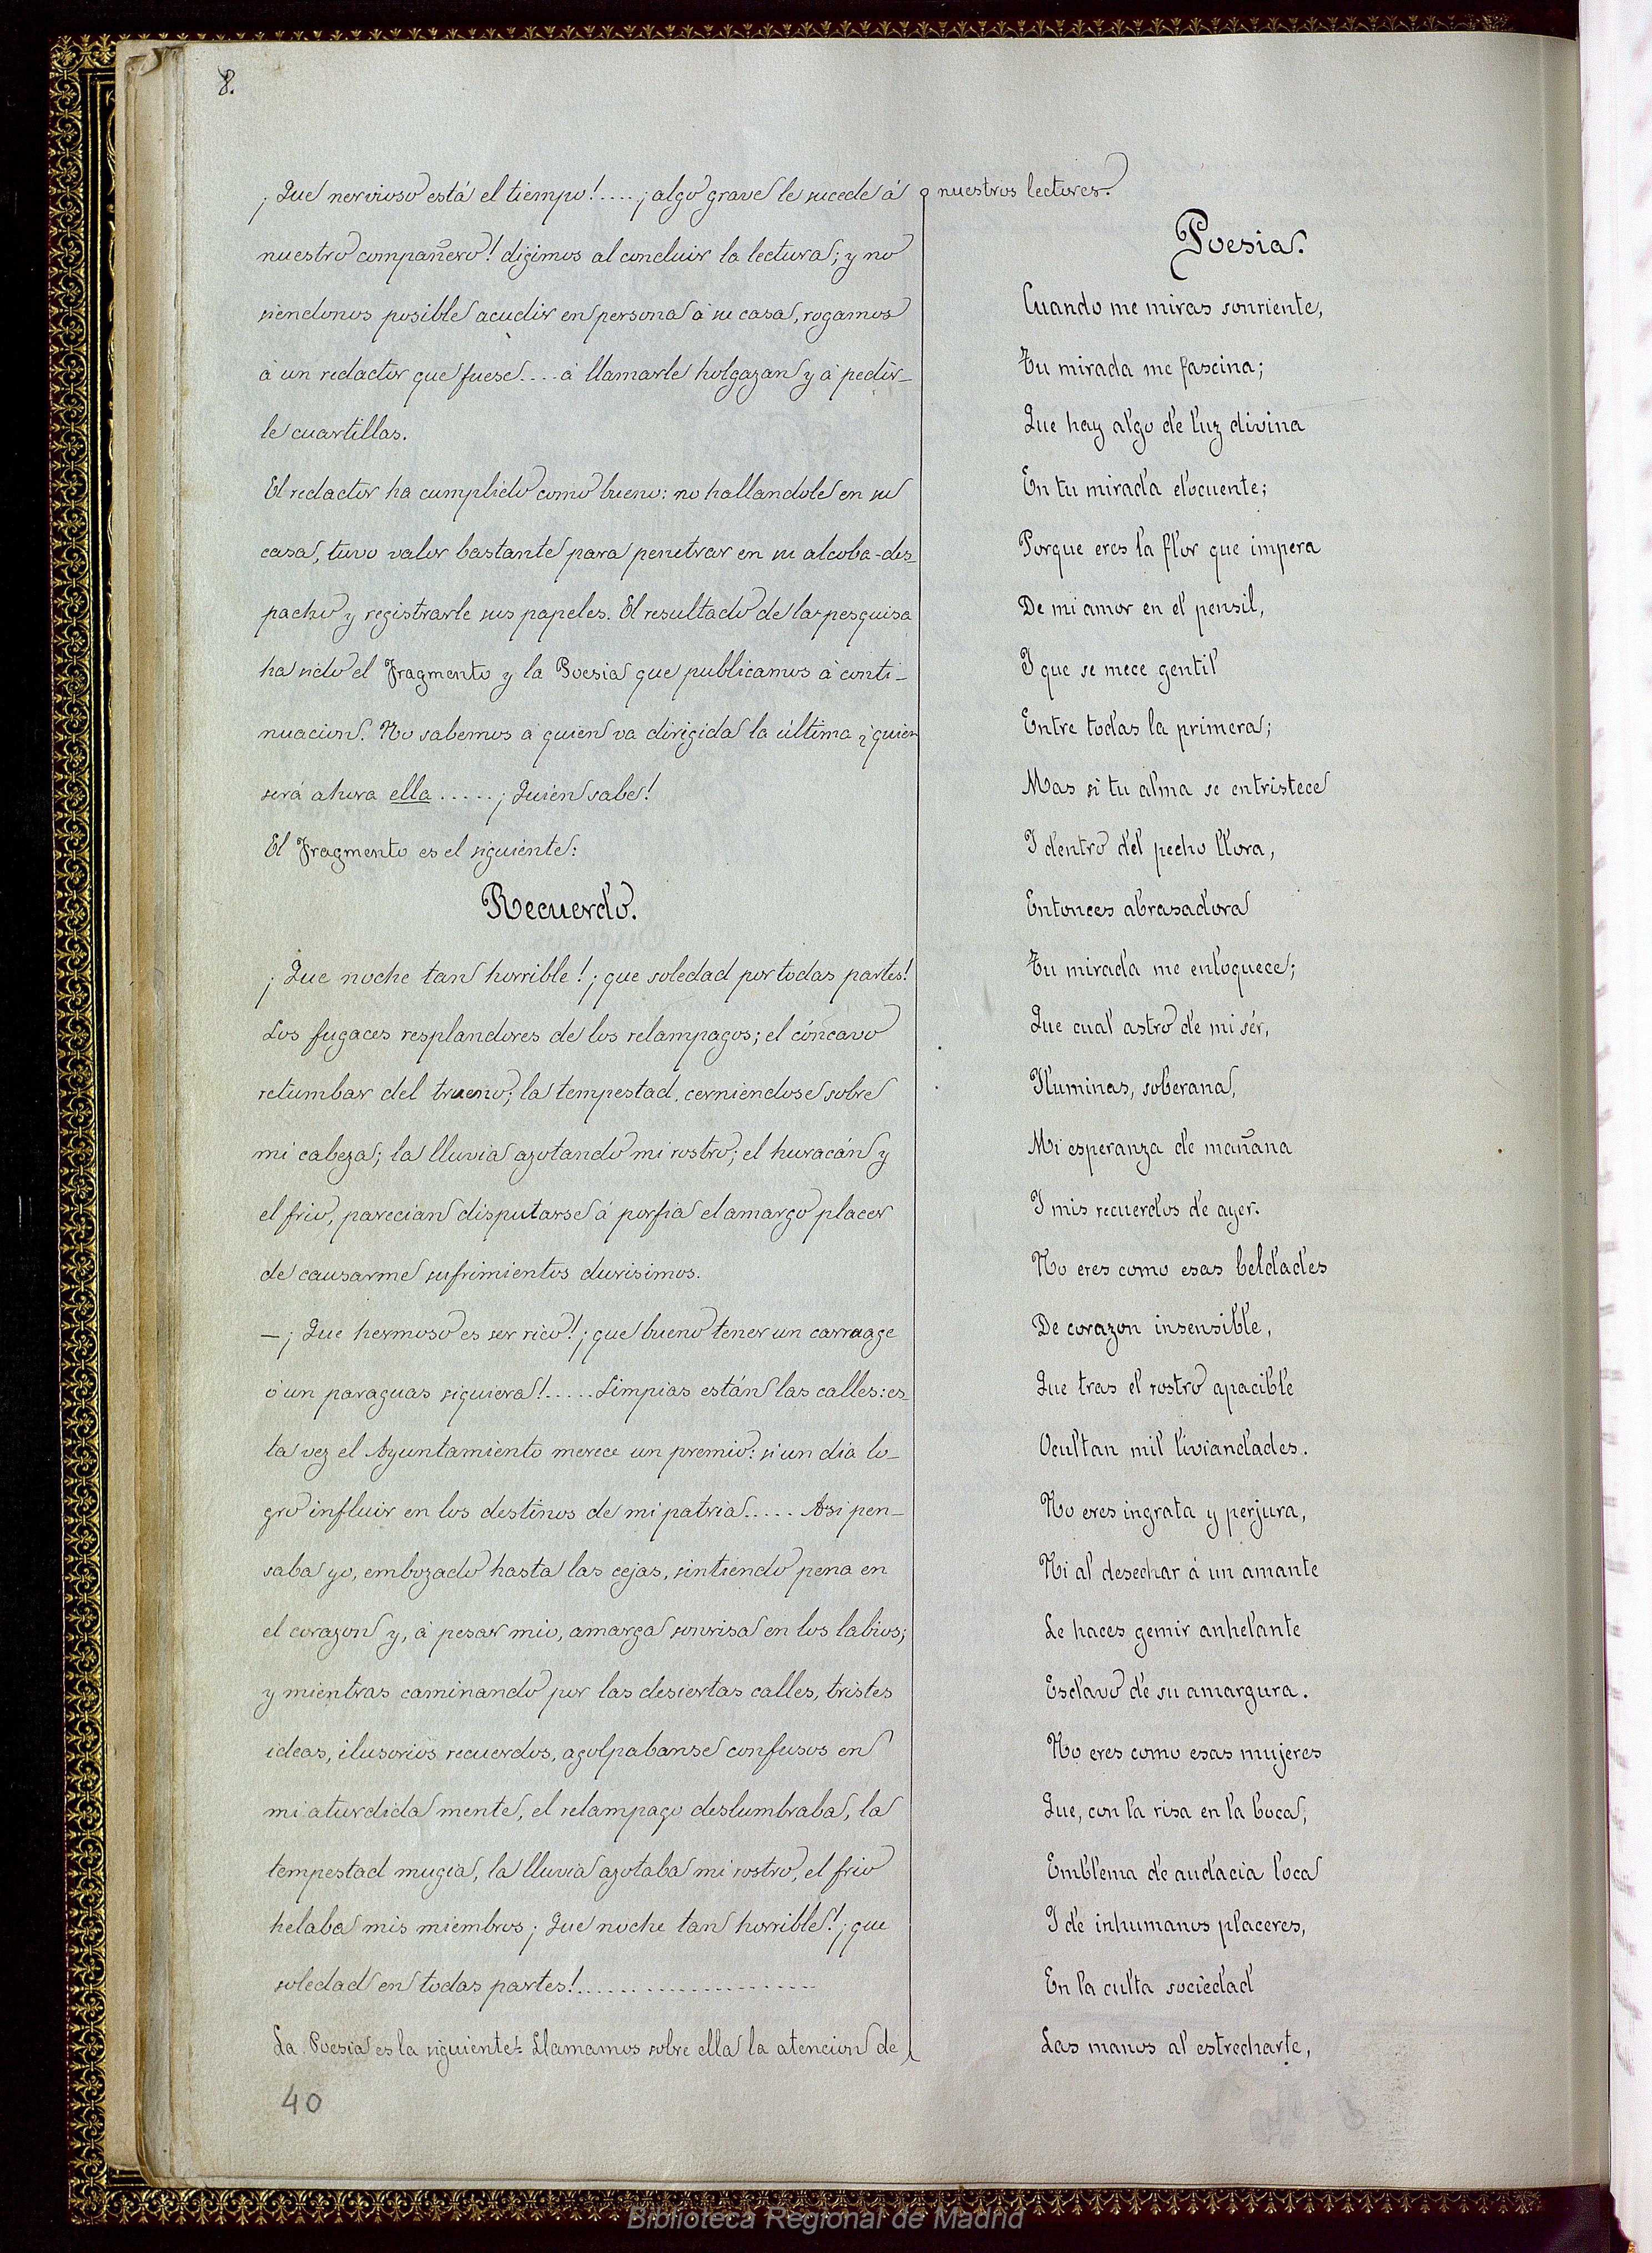 8.
¡Que nervioso está el tiempo!....¡algo grave le sucede á
nuestro compañero! digimos al concluir la lectura; y no
siendonos posible acudir en persona á su casa, rogamos
á un redactor que fuese....á llamarle holgazan y á pedir-
le cuartillas.
El redactor ha cumplido como bueno: no hallandole en su
casa, tuvo valor bastante para penetrar en su alcoba-des-
pacho y registrarle sus papeles. El resultado de la pesquisa
ha sido el Fragmento y la Poesia que publicamos á conti-
nuacion. No sabemos á quien va dirigida la última ¿quien
será ahora ella.....¡Quien sabe!
El Fragmento es el siguiente:
Recuerdo.
¡Que noche tan horrible! ¡que soledad por todas partes!
Los fugaces resplandores de los relampagos; el cóncavo
retumbar del trueno; la tempestad, cerniendose sobre
mi cabeza; la lluvia azotando mi rostro; el huracán y
el frio, parecian disputarse á porfia el amargo placer
de causarme sufrimientos durisimos.
—¡Que hermoso es ser rico! ¡que bueno tener un carruage
ó un paraguas siquiera!.....Limpias están las calles: es-
ta vez el Ayuntamiento merece un premio: si un dia lo-
gro influir en los destinos de mi patria..... Asi pen-
saba yo, embozado hasta las cejas, sintiendo pena en
el corazon y, á pesar mio, amarga sonrisa en los labios;
y mientras caminando por las desiertas calles, tristes
ideas, ilusorios recuerdos, agolpabanse confusos en
mi aturdida mente, el relampago deslumbraba, la
tempestad mugia, la lluvia azotaba mi rostro, el frio
helaba mis miembros; ¡Que noche tan horrible! ¡que
soledad en todas partes!.......................
La Poesia es la siguiente: Llamamos sobre ella la atencion de
40
nuestros lectores.
Poesia.
Cuando me miras sonriente,
Tu mirada me fascina;
Que hay algo de luz divina
En tu mirada elocuente;
Porque eres la flor que impera
De mi amor en el pensil,
I que se mece gentil
Entre todas la primera;
Mas si tu alma se entristece
I dentro del pecho llora,
Entonces abrasadora
Tu mirada me enloquece;
Que cual astro de mi sér,
Iluminas, soberana,
Mi esperanza de mañana
I mis recuerdos de ayer.
No eres como esas beldades
De corazon insensible,
Que tras el rostro apacible
Ocultan mil liviandades.
No eres ingrata y perjura,
Ni al desechar á un amante
Le haces gemir anhelante
Esclavo de su amargura.
No eres como esas mujeres
Que, con la risa en la boca,
Emblema de audacia loca
I de inhumanos placeres,
En la culta sociedad
Las manos al estrecharte,
Biblioteca Regional de Madrid